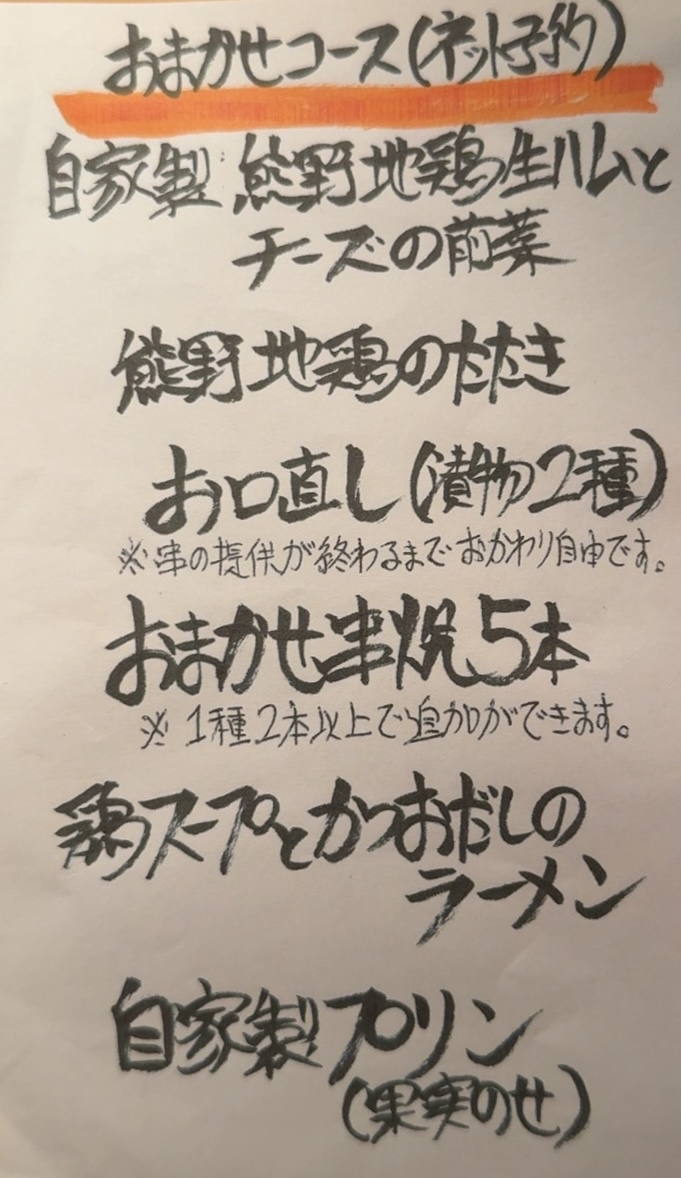 おまかせコース(ネット予約)
自家製 熊野地鶏生ハムと
チーズの前菜
熊野地鶏のたたき
お口直し(漬物2種)
※串の提供が終わるまでおかわり自由です。
おまかせ串焼5本
※1種2本以上で追加ができます。
鶏スープとかつおだしの
ラーメン
自家製プリン
(果実のせ)